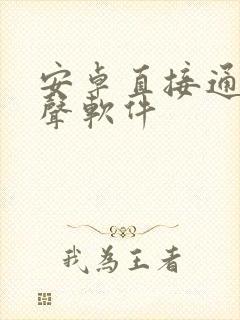 安卓直接通
聲軟件
我為王者